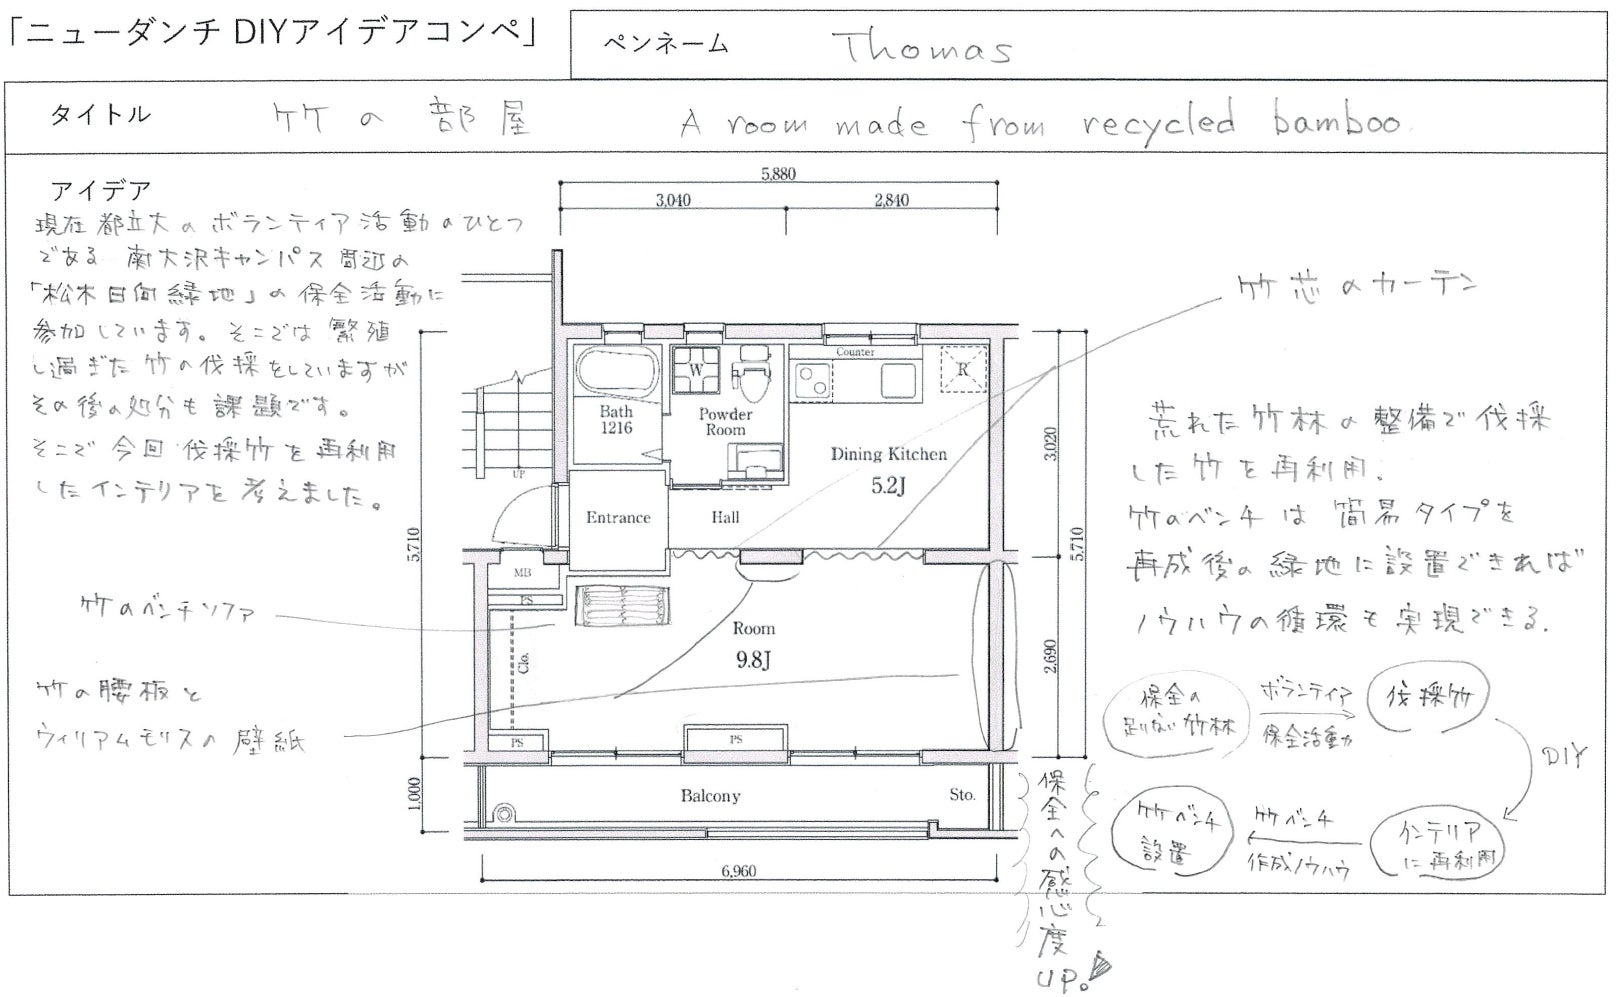 「ニューダンチ DIYアイデアコンペ」
ペンネーム Thomas
タイトル 竹の部屋 A room made from recycled bamboo
アイデア
現在都立大のボランティア活動のひとつ
である 南大沢キャンパス周辺の
「松木日向緑地」の保全活動に
参加しています。そこでは繁殖
し過ぎた竹の伐採をしていますが
その後の処分も課題です。
そこで今回伐採竹を再利用
したインテリアを考えました。
竹のベンチソファ
竹の腰板と
ウィリアムモリスの壁紙
5,880
3,040
2,840
Bath
1216
W
Powder
Room
Counter
R
Dining Kitchen
5.2J
UP
Entrance
Hall
MB
PS
Clo.
Room
9.8J
PS
PS
Balcony
Sto.
5,710
1,000
3,020
5,710
2,690
6,960
竹芯のカーテン
荒れた竹林の整備で伐採
した竹を再利用.
竹のベンチは簡易タイプを
再成後の緑地に設置できれば
ノウハウの循環も実現できる.
保全の
足りない竹林
ボランティア
保全活動
伐採竹
DIY
インテリア
に再利用
竹ベンチ
作成ノウハウ
竹ベンチ
設置
保全への感心度
UP!